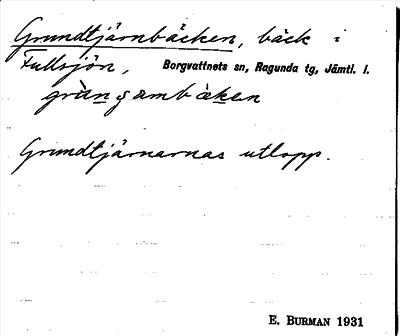 Grundtjärnbäcken, bäck i
Fullsjön, Borgvattnets sn, Ragunda tg, Jämtl. l.
Grundtjärnarnas utlopp.
E. BURMAN 1931